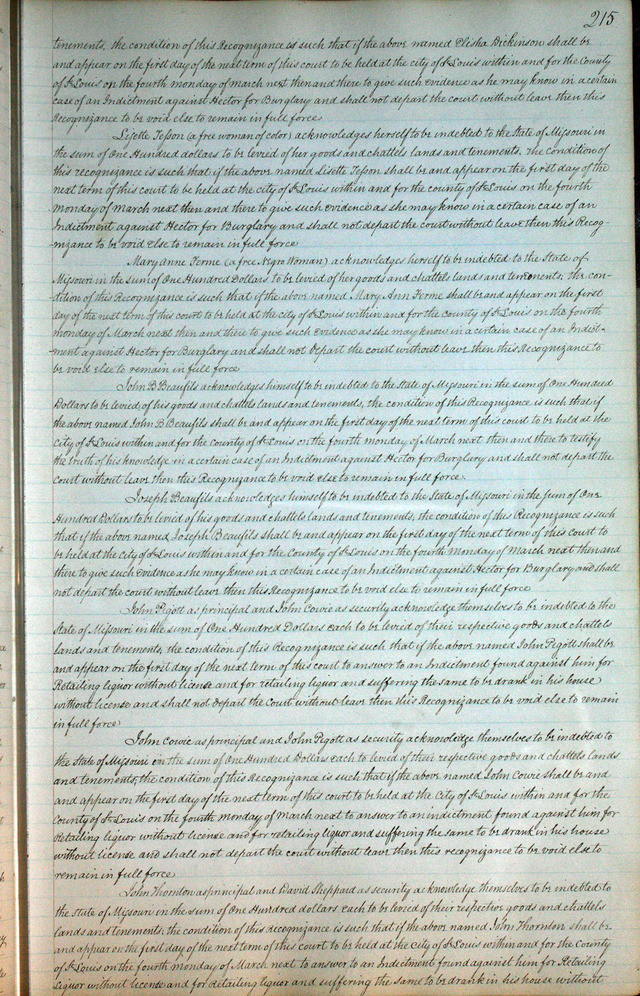 215
tenements, the condition of this Recognizance is such that if the above named Elisha Dickinson shall be
and appear on the first day of the next term of this court to be held at the city of St Louis within and for the County
of St Louis on the fourth monday of march next then and there to give such evidence as he may know in a certain
case of an Indictment against Hector for Burglary and shall not depart the court without leave then this
Recognizance to be void else to remain in full force
Lisette Tesson (a free woman of color) acknowledges herself to be indebted to the State of Missouri in
the sum of One Hundred dollars to be levied of her goods and chattels lands and tenements, the condition of
this recognizance is such that if the above named Lisette Tesson shall be and appear on the first day of the
next term of this court to be held at the city of St Louis within and for the county of St Louis on the fourth
monday of March next then and there to give such evidence as she may know in a certain case of an
Indictment against Hector for Burglary and shall not depart the court without leave then this Recog-
nizance to be void else to remain in full force
Mary Anne Ferme (a free Negro Woman) acknowledges herself to be indebted to the State of
Missouri in the sum of One Hundred Dollars to be levied of her goods and chattels lands and tenements, the con-
dition of this Recognizance is such that if the above named Mary Ann Ferme shall be and appear on the first
day of the next term of this court to be held at the city of St Louis within and for the county of St Louis on the fourth
monday of March next then and there to give such evidence as she may know in a certain case of an Indict-
-ment against Hector for Burglary and shall not depart the court without leave then this Recognizance to
be void else to remain in full force
John B Beaufils acknowledges himself to be indebted to the State of Missouri in the sum of One Hundred
Dollars to be levied of his goods and chattels lands and tenements, the condition of this Recognizance is such that if
the above named John B Beaufils shall be and appear on the first day of the next term of this court to be held at the
City of St Louis within and for the County of St Louis on the fourth monday of March next then and there to testify
the truth of his knowledge in a certain case of an Indictment against Hector for Burglary and shall not depart the
Court without leave then this Recognizance to be void else to remain in full force.
Joseph Beaufils acknowledges himself to be indebted to the State of Missouri in the sum of One
Hundred Dollars to be levied of his goods and chattels lands and tenements, the condition of this Recognizance is such
that if the above named Joseph Beaufils shall be and appear on the first day of the next term of this court to
be held at the city of St Louis within and for the County of St Louis on the fourth Monday of March next then and
there to give such evidence as he may know in a certain case of an Indictment against Hector for Burglary and shall
not depart the court without leave then this Recognizance to be void else to remain in full force
John Pigott as principal and John Cowie as security acknowledge themselves to be indebted to the
State of Missouri in the sum of One Hundred Dollars each to be levied of their respective goods and chattels
lands and tenements, the condition of this Recognizance is such that if the above named John Pigott shall be
and appear on the first day of the next term of this court to answer to an Indictment found against him for
Retailing liquor without license and for retailing liquor and suffering the same to be drank in his house
without license and shall not depart the Court without leave then this Recognizance to be void else to remain
in full force
John Cowie as principal and John Pigott as security acknowledge themselves to be indebted to
the State of Missouri in the sum of One Hundred Dollars each to levied of their respective goods and chattels lands
and tenements, the condition of this Recognizance is such that if the above named John Cowie shall be and
and appear on the first day of the next term of this court to be held at the City of St Louis within and for the
County of St Louis on the fourth monday of March next to answer to an indictment found against him for
Retailing liquor without license and for retailing liquor and suffering the same to be drank in his house
without license and shall not depart the court without leave then this recognizance to be void else to
remain in full force
John Thornton as principal and David Sheppard as security acknowledge themselves to be indebted to
the state of Missouri in the sum of One Hundred dollars each to be levied of their respective goods and chattels
lands and tenements, the condition of this recognizance is such that if the above named John Thornton shall be
and appear on the first day of the next term of this court to be held at the City of St Louis within and for the County
of St Louis on the fourth monday of March next to answer to an Indictment found against him for Retailing
Liquor without license and for Retailing liquor and suffering the same to be drank in his house without